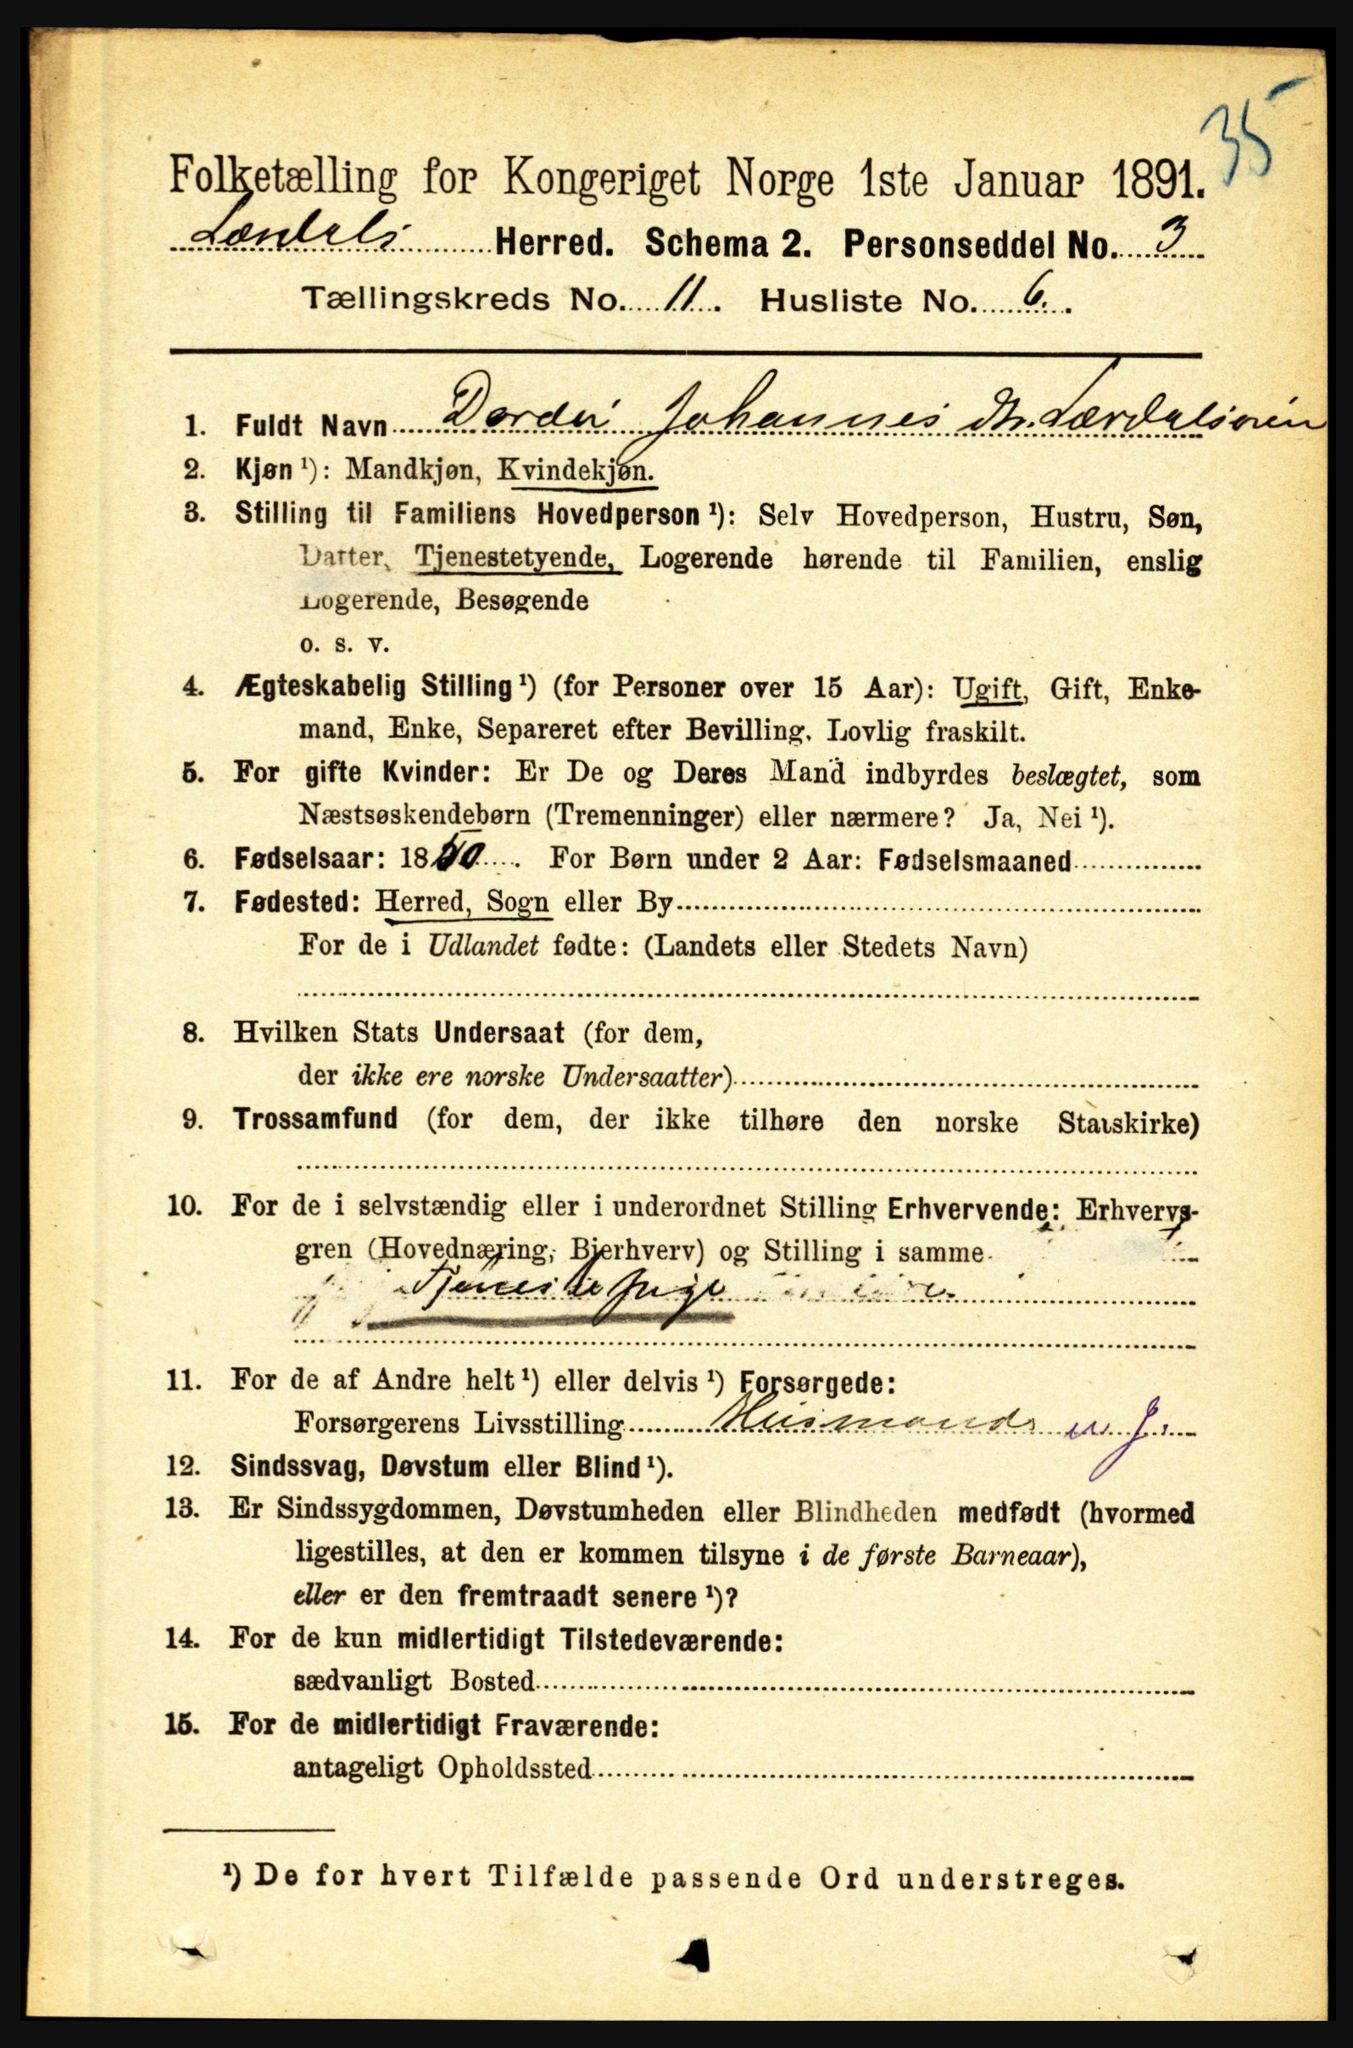 35
Folketælling for Kongeriget Norge 1ste Januar 1891.
Lærdals Herred. Schema 2. Personseddel No. 3
Tællingskreds No. 11. Husliste No. 6.
1. Fuldt Navn Dordei Johannes dtr. Lærdalsøren
2. Kjøn ¹): Mandkjøn, Kvindekjøn.
3. Stilling til Familiens Hovedperson ¹): Selv Hovedperson, Hustru, Søn,
Datter, Tjenestetyende, Logerende hørende til Familien, enslig
Logerende, Besøgende
o. s. v.
4. Ægteskabelig Stilling ¹) (for Personer over 15 Aar): Ugift, Gift, Enke-
mand, Enke, Separeret efter Bevilling. Lovlig fraskilt.
5. For gifte Kvinder: Er De og Deres Mand indbyrdes beslægtet, som
Næstsøskendebørn (Tremenninger) eller nærmere? Ja, Nei ¹).
6. Fødselsaar: 1850. For Børn under 2 Aar: Fødselsmaaned
7. Fødested: Herred, Sogn eller By
For de i Udlandet fødte: (Landets eller Stedets Navn)
8. Hvilken Stats Undersaat (for dem,
der ikke ere norske Undersaatter)
9. Trossamfund (for dem, der ikke tilhøre den norske Statskirke)
10. For de i selvstændig eller i underordnet Stilling Erhvervende: Erhvervs-
gren (Hovednæring, Bierhverv) og Stilling i samme
Tjenestepige
11. For de af Andre helt ¹) eller delvis ¹) Forsørgede:
Forsørgerens Livsstilling Husmand m. J.
12. Sindssvag, Døvstum eller Blind ¹).
13. Er Sindssygdommen, Døvstumheden eller Blindheden medfødt (hvormed
ligestilles, at den er kommen tilsyne i de første Barneaar),
eller er den fremtraadt senere ¹)?
14. For de kun midlertidigt Tilstedeværende:
sædvanligt Bosted
15. For de midlertidigt Fraværende:
antageligt Opholdssted
¹) De for hvert Tilfælde passende Ord understreges.